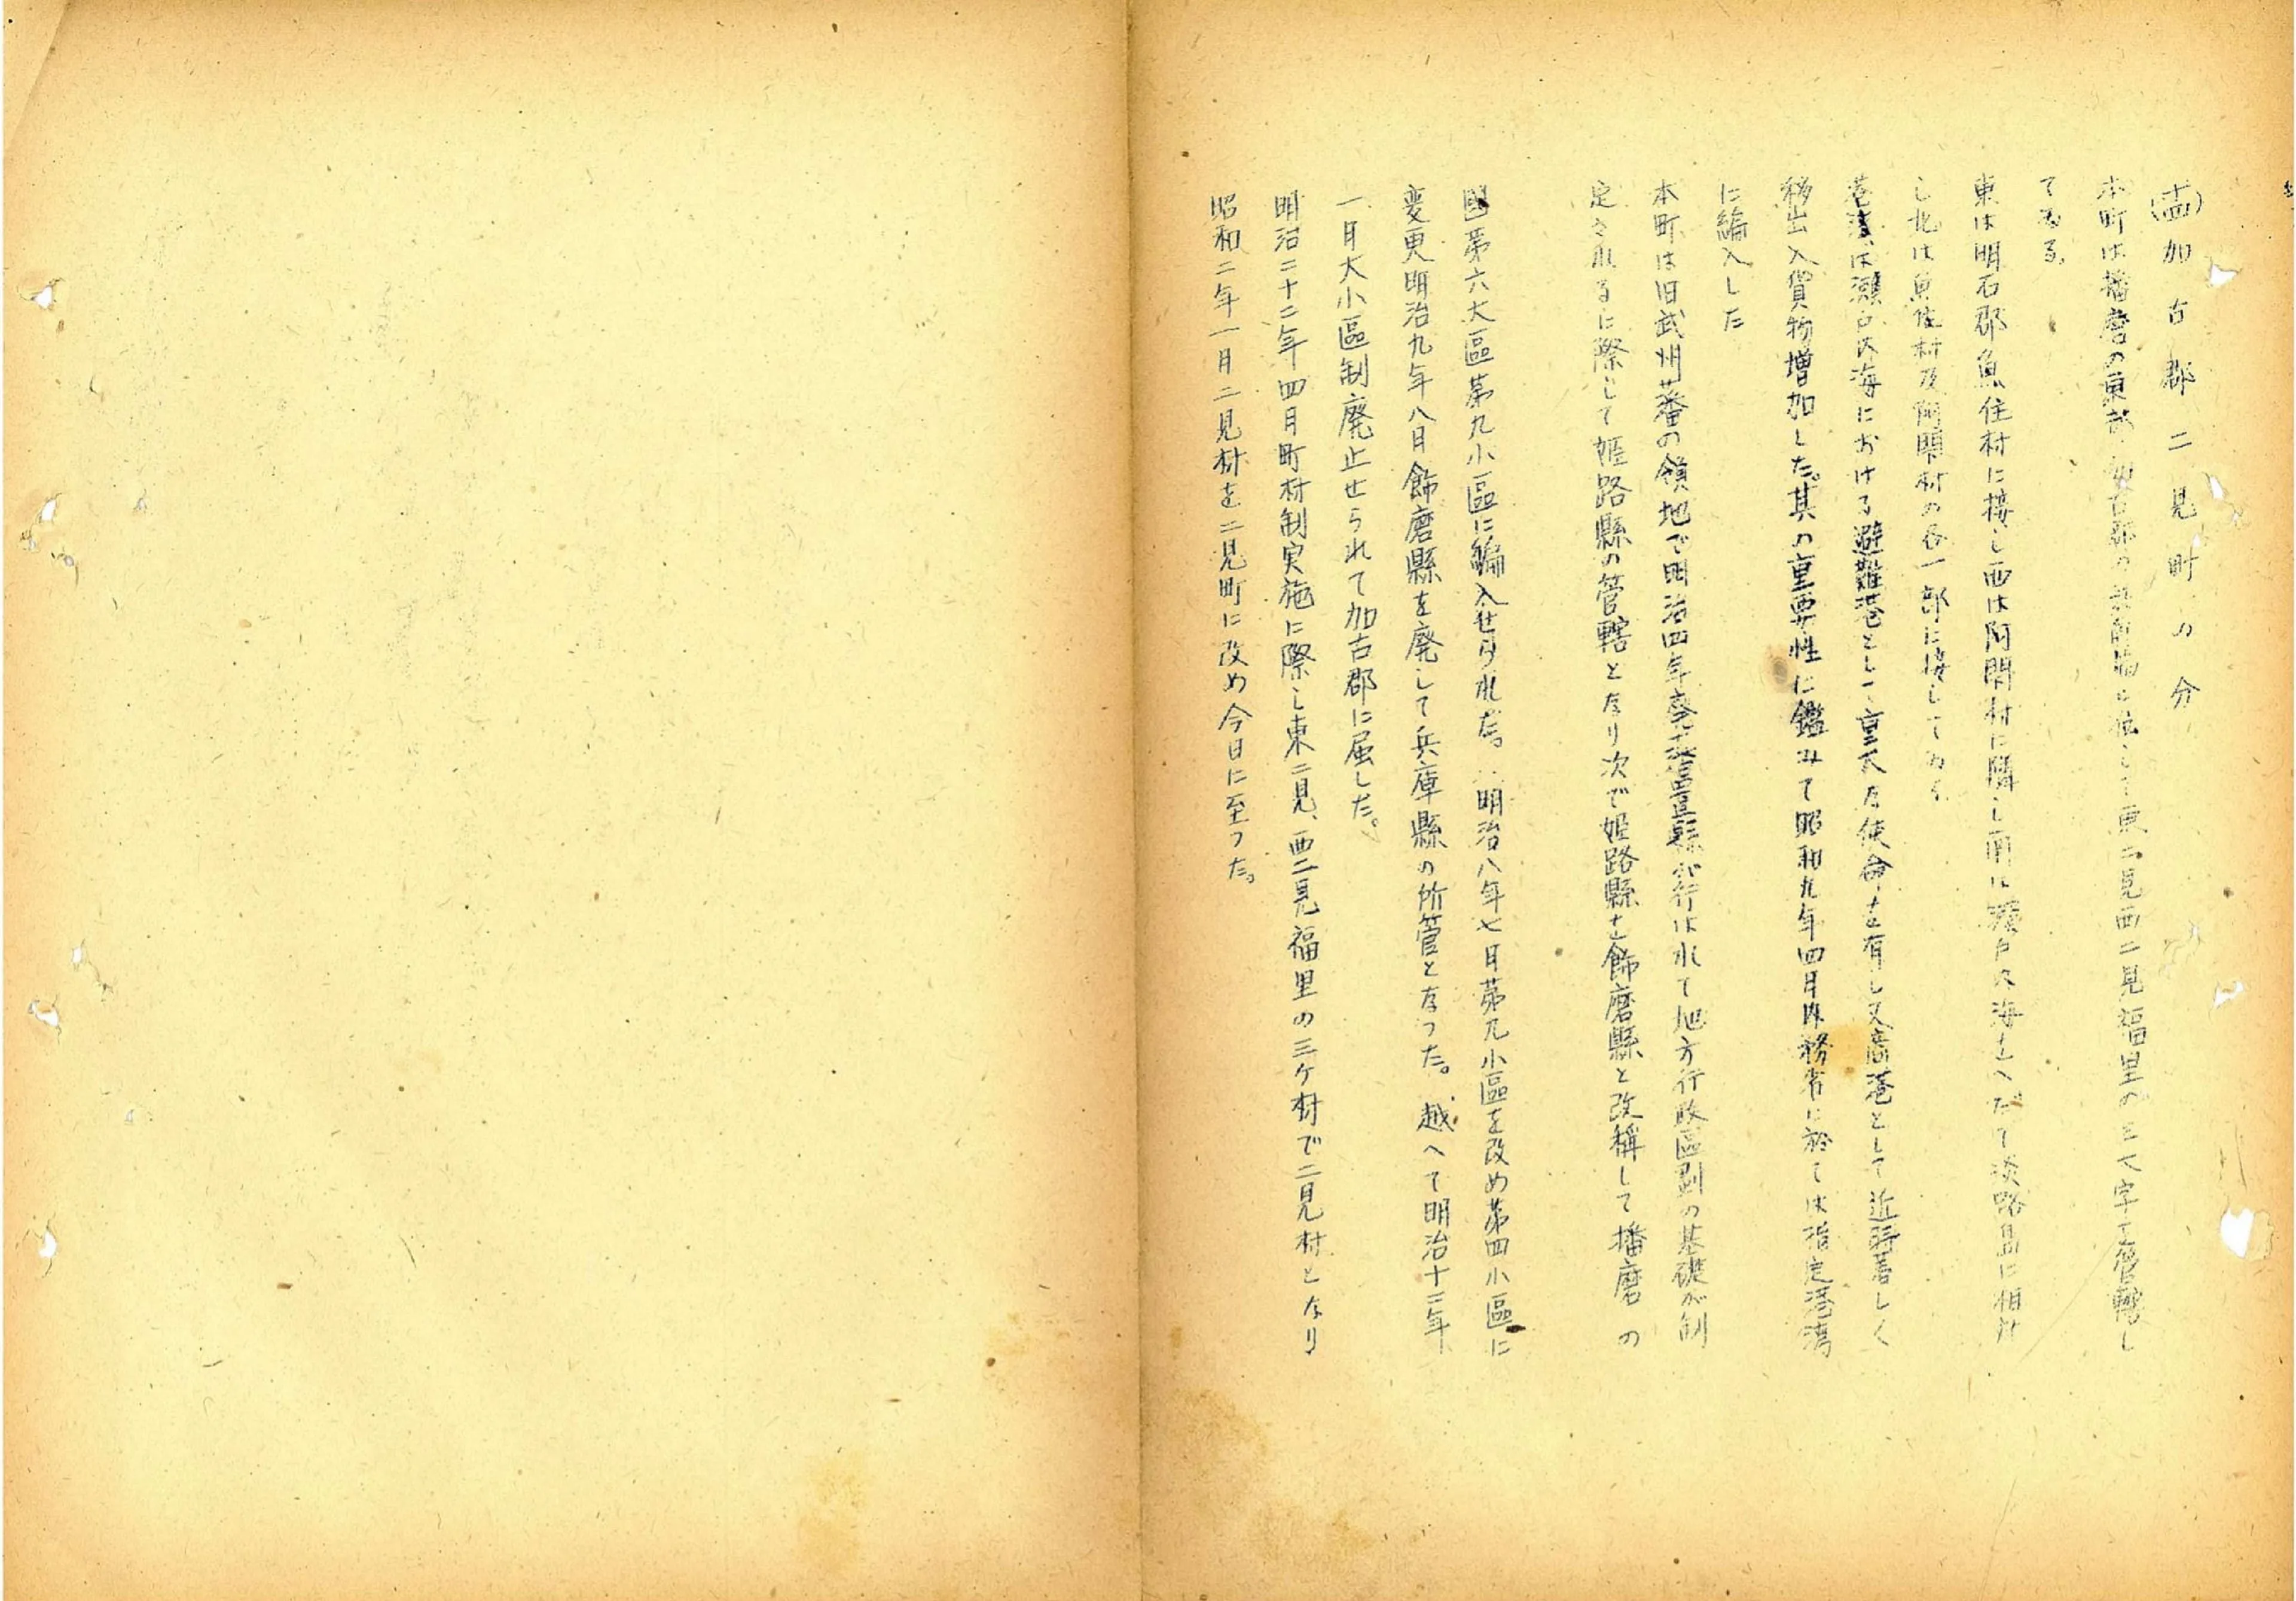 (十四)加古郡二見町の分
本町は播磨の東部加古郡の に位して東二見西二見福里の三大字を管轄し
てゐる。
東は明石郡魚住村に接し西は阿閇村に隣し南は瀬戸内海をへだてて淡路島に相対
し北は魚住村及阿閇村の各一部に接してゐる
港湾は瀬戸内海における避難港とし重大な使命を有し又商港として近時著しく
移出入貨物増加した。其の重要性に鑑みて昭和九年四月内務省に於ては指定港湾
に編入した
本町は旧武州藩の領地で明治四年廃藩置縣が行はれて地方行政區劃の基礎が制
定されるに際して姫路縣の管轄となり次で姫路縣を飾磨縣と改稱して播磨の
國第六大區第九小區に編入せられた。明治八年七月第九小區を改め第四小區に
変更明治九年八月飾磨縣を廃して兵庫縣の所管となつた。越へて明治十二年
一月大小區制廃止せられて加古郡に属した。
明治二十二年四月町村制実施に際し東二見、西二見福里の三ケ村で二見村となり
昭和二年一月二見村を二見町に改め今日に至つた。